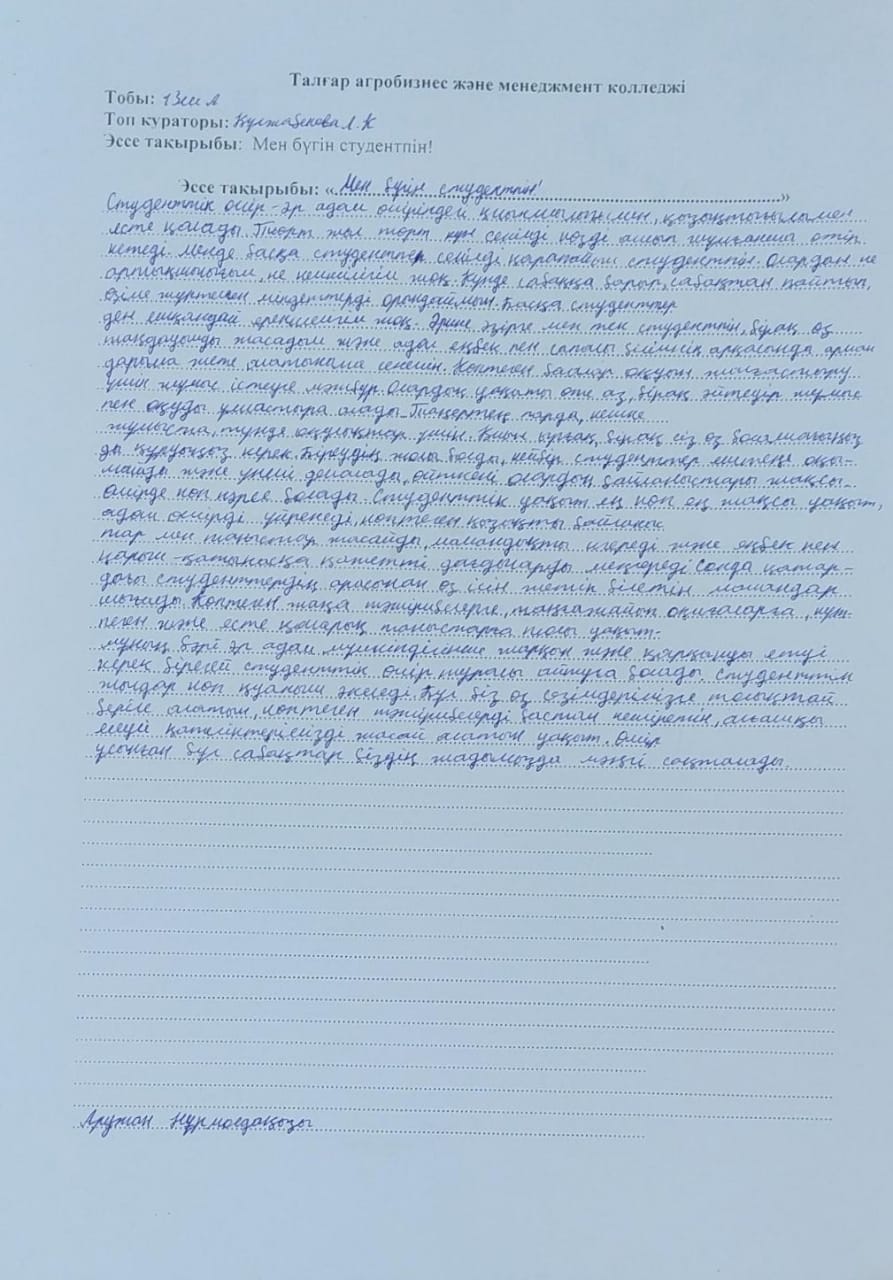 Талғар агробизнес және менеджмент колледжі
Тобы: 13 А
Топ кураторы: Құлжабекова Л. К
Эссе тақырыбы: Мен бүгін студентпін!
Эссе тақырыбы: «Мен бүгін студентпін!»
Студенттік өмір-әр адам өмірінде қиыншылығымен, қызықтығылымен
есте қалады. Төрт жыл төрт күн секілді көзді ашып жұмғанша өтіп
кетеді. Менде басқа студенттер секілді қарапайым студентпін. Олардан не
артықшылығым, не кемшілігім жоқ. Күнде сабаққа барып, сабақтан қайтып,
өзіме жүктелген міндеттерді орындаймын. Басқа студенттер
ден ешқандай ерекшелігім жоқ. Әрине әзірге мен тек студентпін, бірақ өз
таңдауымды жасадым және адал еңбек пен сапалы білімнің арқасында арман
дарыма жете алатыныма сенемін. Көптеген балалар оқуын жалғастыру
үшін жұмыс істеуге мәжбүр. Олардың уақыты өте аз, бірақ әйтеуір жұмыс
пен оқуды ұластыра алады. Таңертең парда, кешке
жұмыста, түнде оқулықтар үшін. Қиын бірақ, бірақ сіз өз болашағыңыз
ды құруыңыз керек. Біреудің жолы болды, кейбір студенттер ештеңе оқы-
майды және үнемі демалады, өйткені олардың байланыстары жақсы.
Өмірде көп нәрсе болады. Студенттік уақыт ең көп ең жақсы уақыт,
адам өмірді үйренеді, көптеген қызықты байланыс
тар мен таныстар жасайды, мамандықты игереді және еңбек пен
қарым-қатынасқа қажетті дағдыларды меңгереді сонда қатар-
дағы студенттердің арасынан өз ісін жетік білетін мамандар
шығады. Көптеген жаңа тәжірибелерге, таңғажайып оқиғаларға, күт-
пеген және есте қаларлық таныстарға толы уақыт.
мұның бәрі әр адам мүмкіндігінше жарқын және қарқынды етуі
керек бірегей студенттік өмір туралы айтуға болады. Студенттік
жылдар көп қуаныш әкеледі. Бұл біз өз сезімдерімізге толықтай
беріле алатын, көптеген тәжірибелерді бастан кешіретін, алғашқы
елеулі қателіктерімізді жасай алатын уақыт. Өмір
ұсынған бұл сабақтар біздің жадымызда мәңгі сақталады.
Аружан Нұрмолдақызы